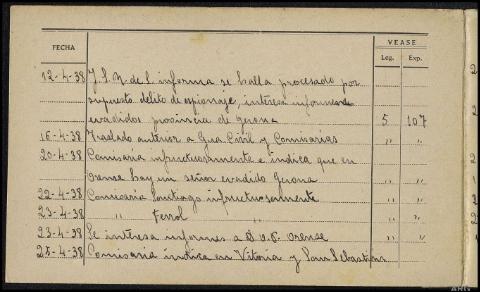 FECHA VEASE
Leg. Exp.
12-4-38 J. S. N. de S. informa se halla procesado por
supuesto delito de espionaje, interesa informes de
evadidos provincia de Gerona 5 107
16-4-38 Traslado anterior a Gua. Civil y Comisarías " "
20-4-38 Comisaria infructuosamente e indica que en
Orense hay un señor evadido Gerona " "
22-4-38 Comisaría Santiago infructuosamente " "
23-4-38 " Ferrol " " "
23-4-38 Se interesa informes a Orense " "
25-4-38 Comisaria indica en Vitoria y San Sebastian " "